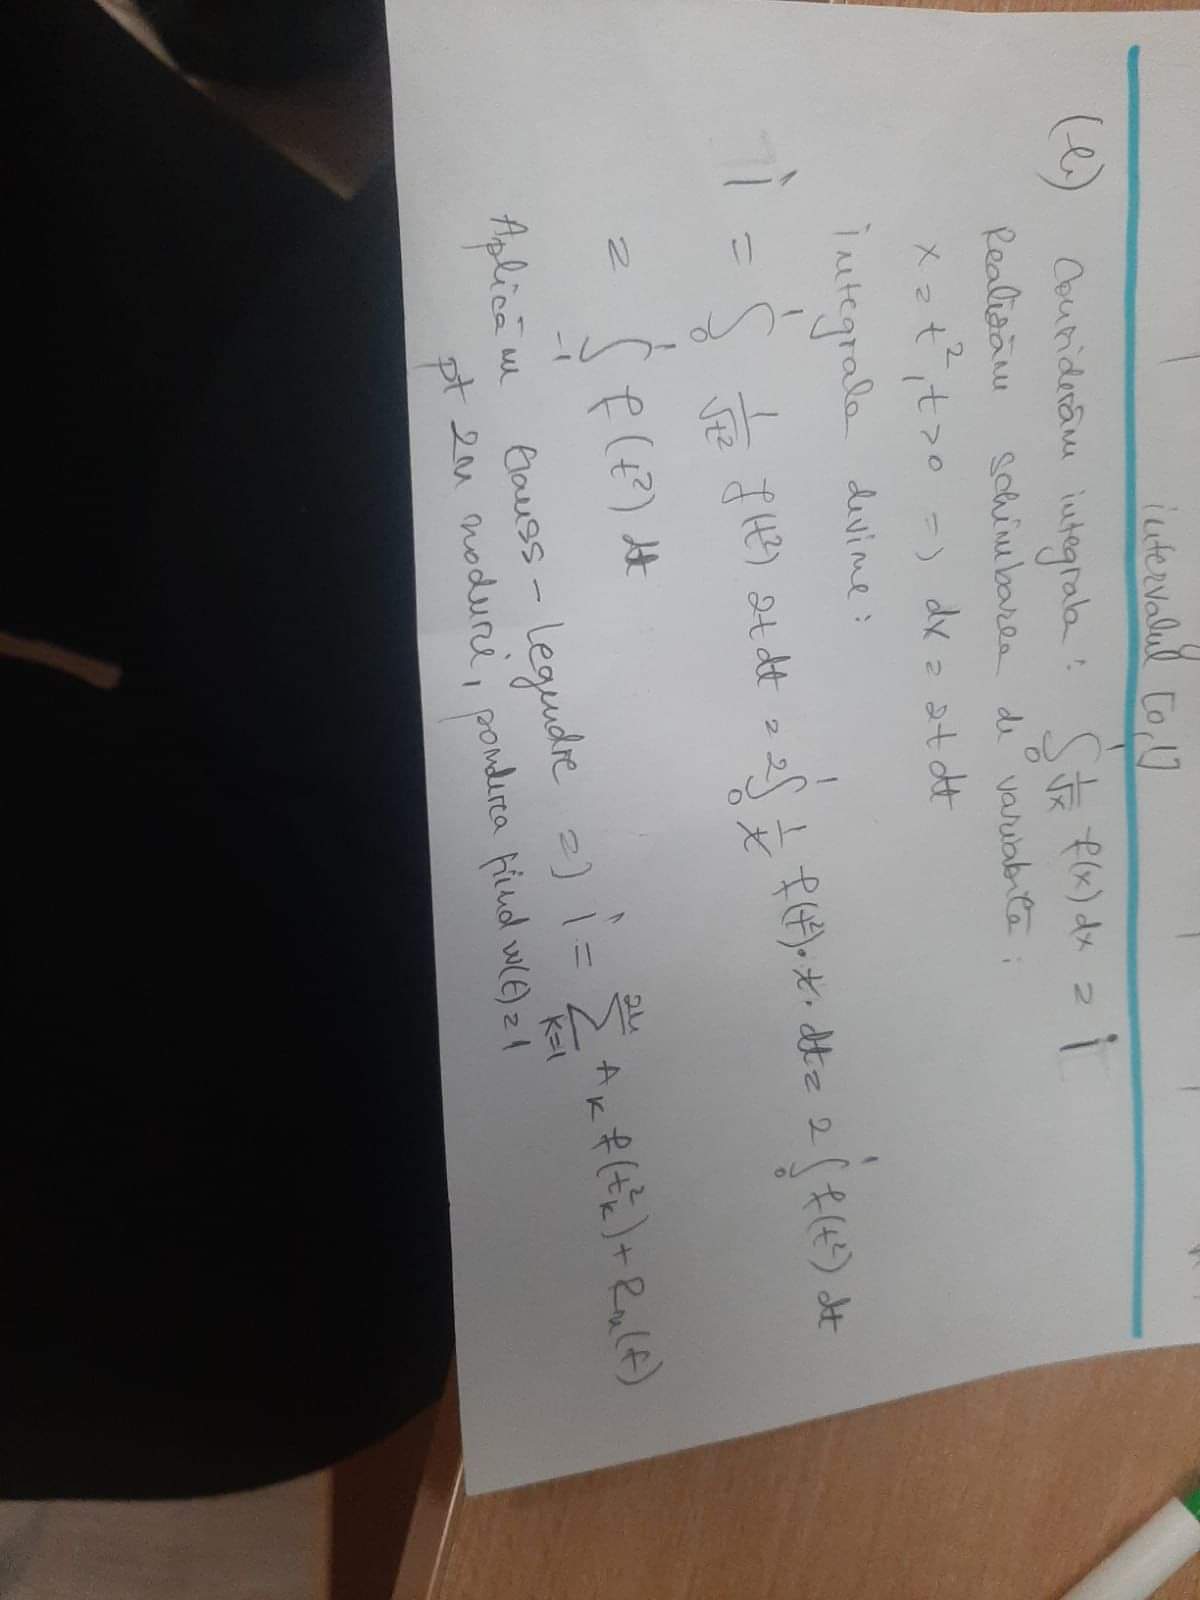 intervalul [0,1]
(b) Considerăm integrala: ∫₀¹ 1/√x f(x) dx = I
Realizăm schimbarea de variabilă:
x = t², t>0 => dx = 2t dt
integrala devine:
I = ∫₀¹ 1/√t² f(t²) 2t dt = 2∫₀¹ 1/t f(t²)·t· dt = 2∫₀¹ f(t²) dt
= ∫₋₁¹ f(t²) dt
Aplicăm Gauss-Legendre => I = ∑ₖ₌₁²ⁿ Aₖ f(tₖ²) + Rₙ(f)
pt 2n noduri, ponderea fiind w(t) = 1